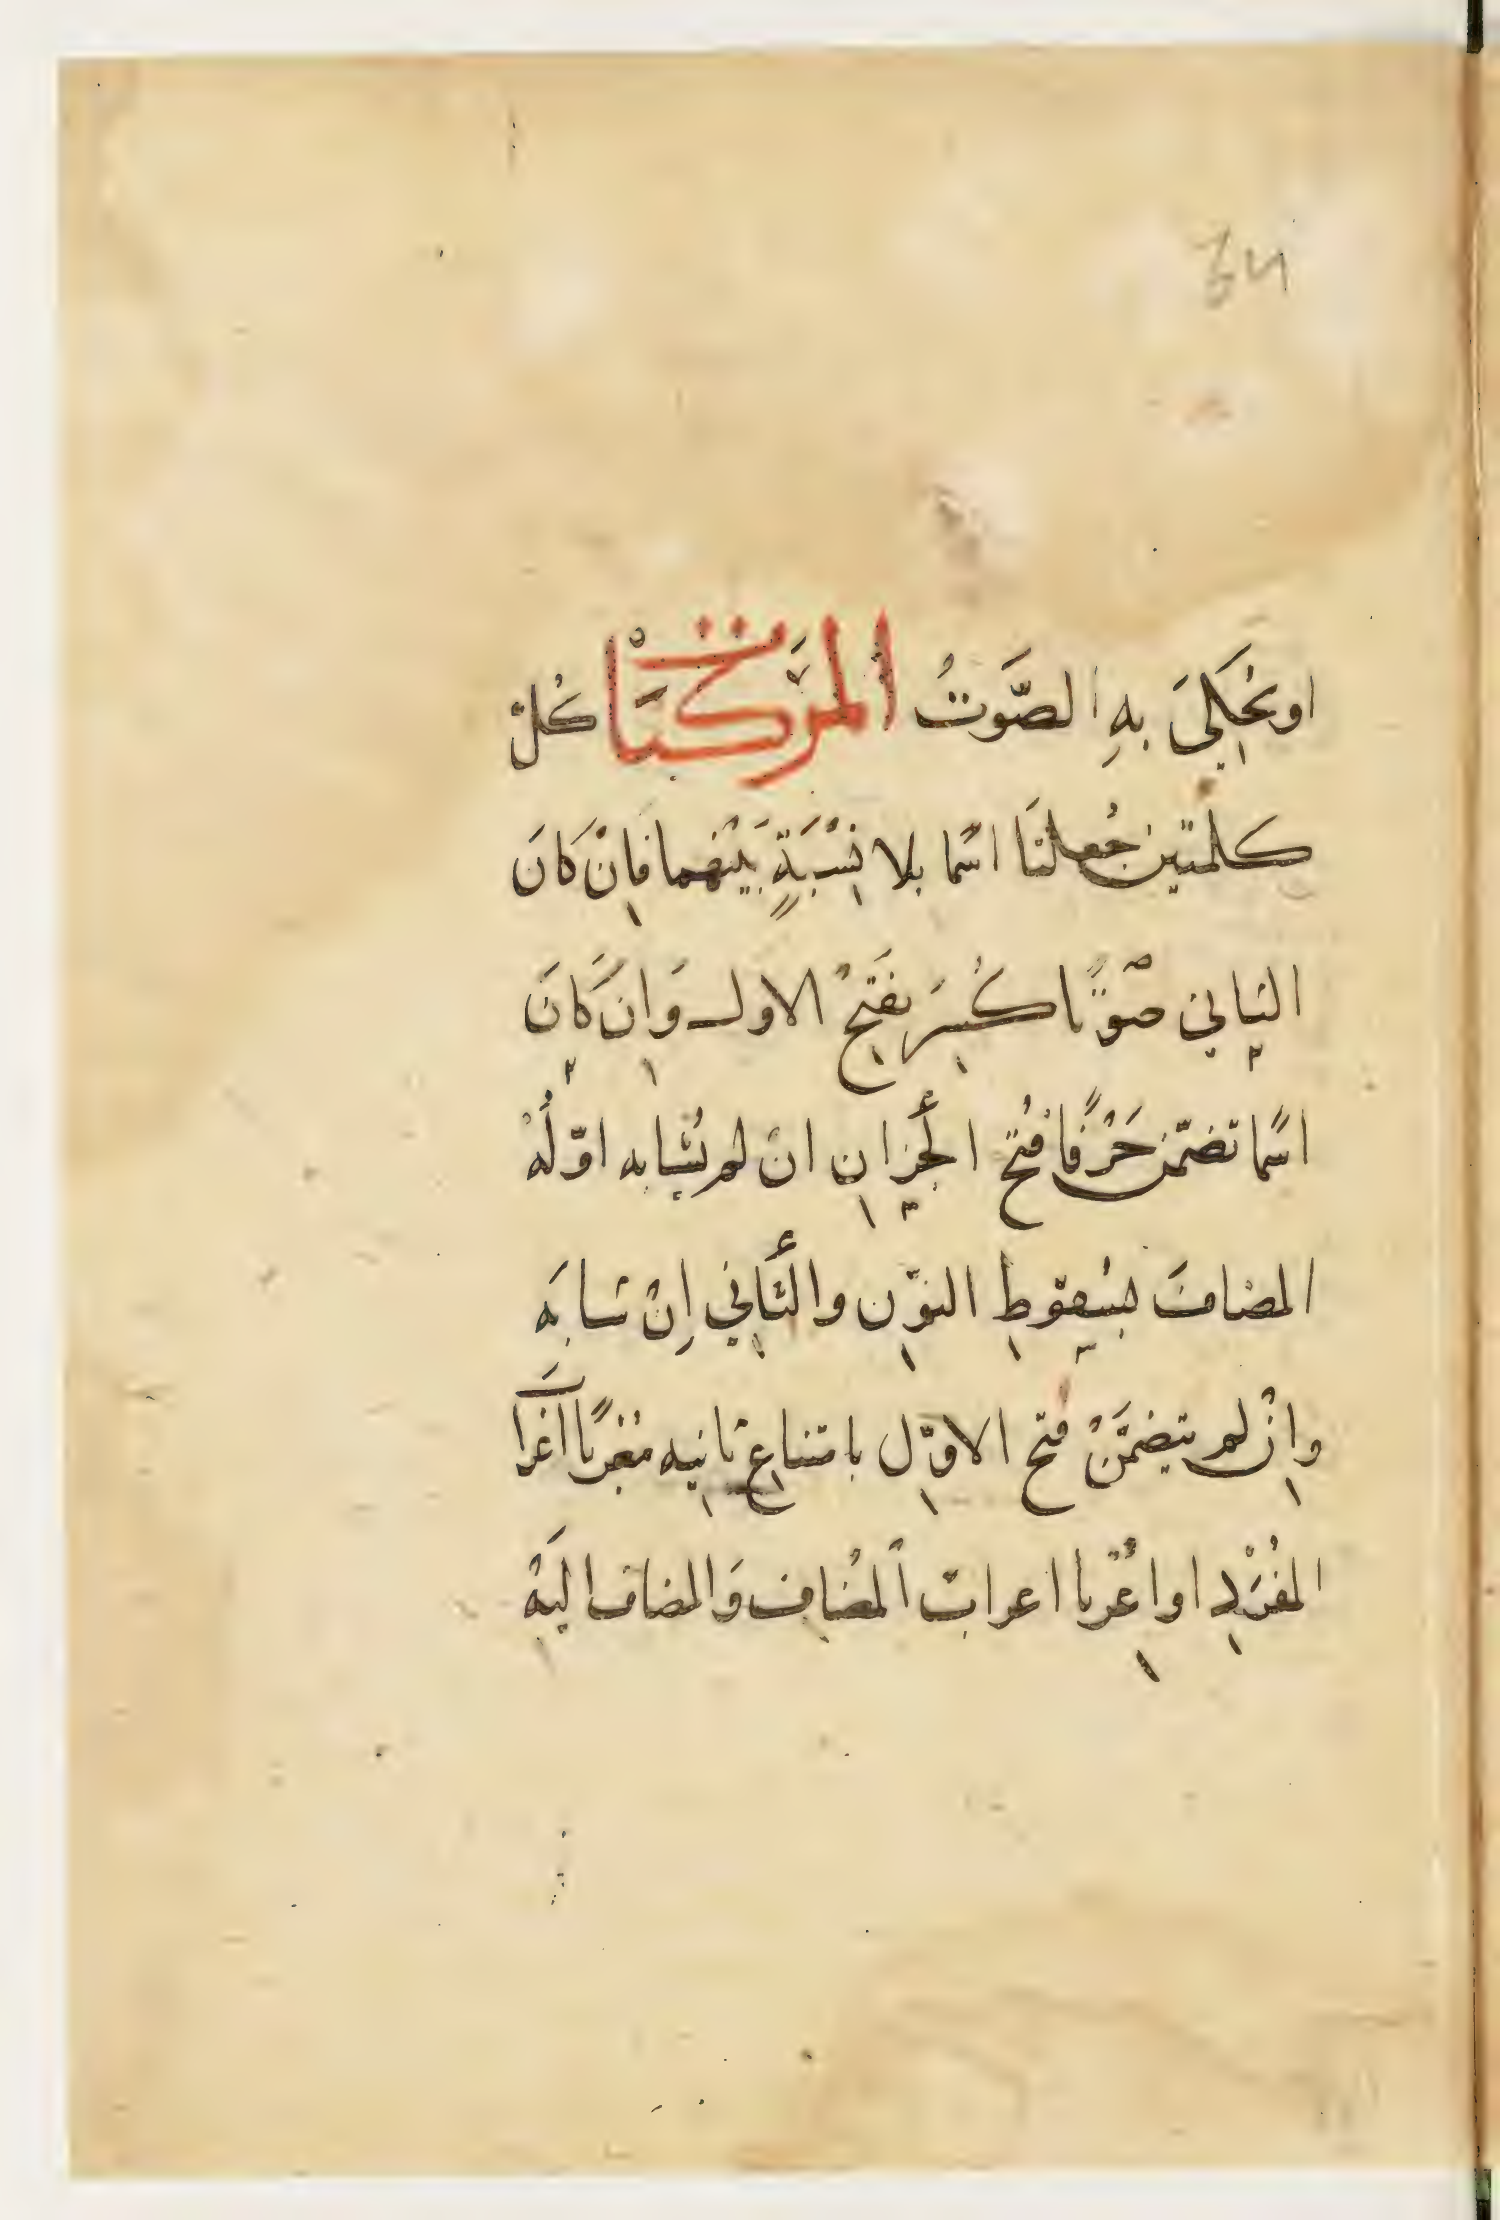 64
او يُحكى بهِ الصَّوتُ المركّبَاتْ كُلّ
كلمتين جُعلتَا اسْمًا بلا نِسْبَةٍ بَيْنهما فَاِنْ كَانَ
الثاني صَوْتًا كُسِرَ بفَتْحِ الاول وَاِن كَانَ
اسْمًا تضمّن حَرْفًا فُتح الجزءانِ انْ لم يُشابه اوّلُهُ
المضافَ بسُقوطِ النّونِ والثَّاني اِنْ شابَه
وإنْ لم يتضمَّنْ فتح الاوّل بامتناع ثانيه مُعْربًا اعْرابَ
المفْرَدِ او اُعْربا اعراب المُضاف وَالمضاف اليهْ